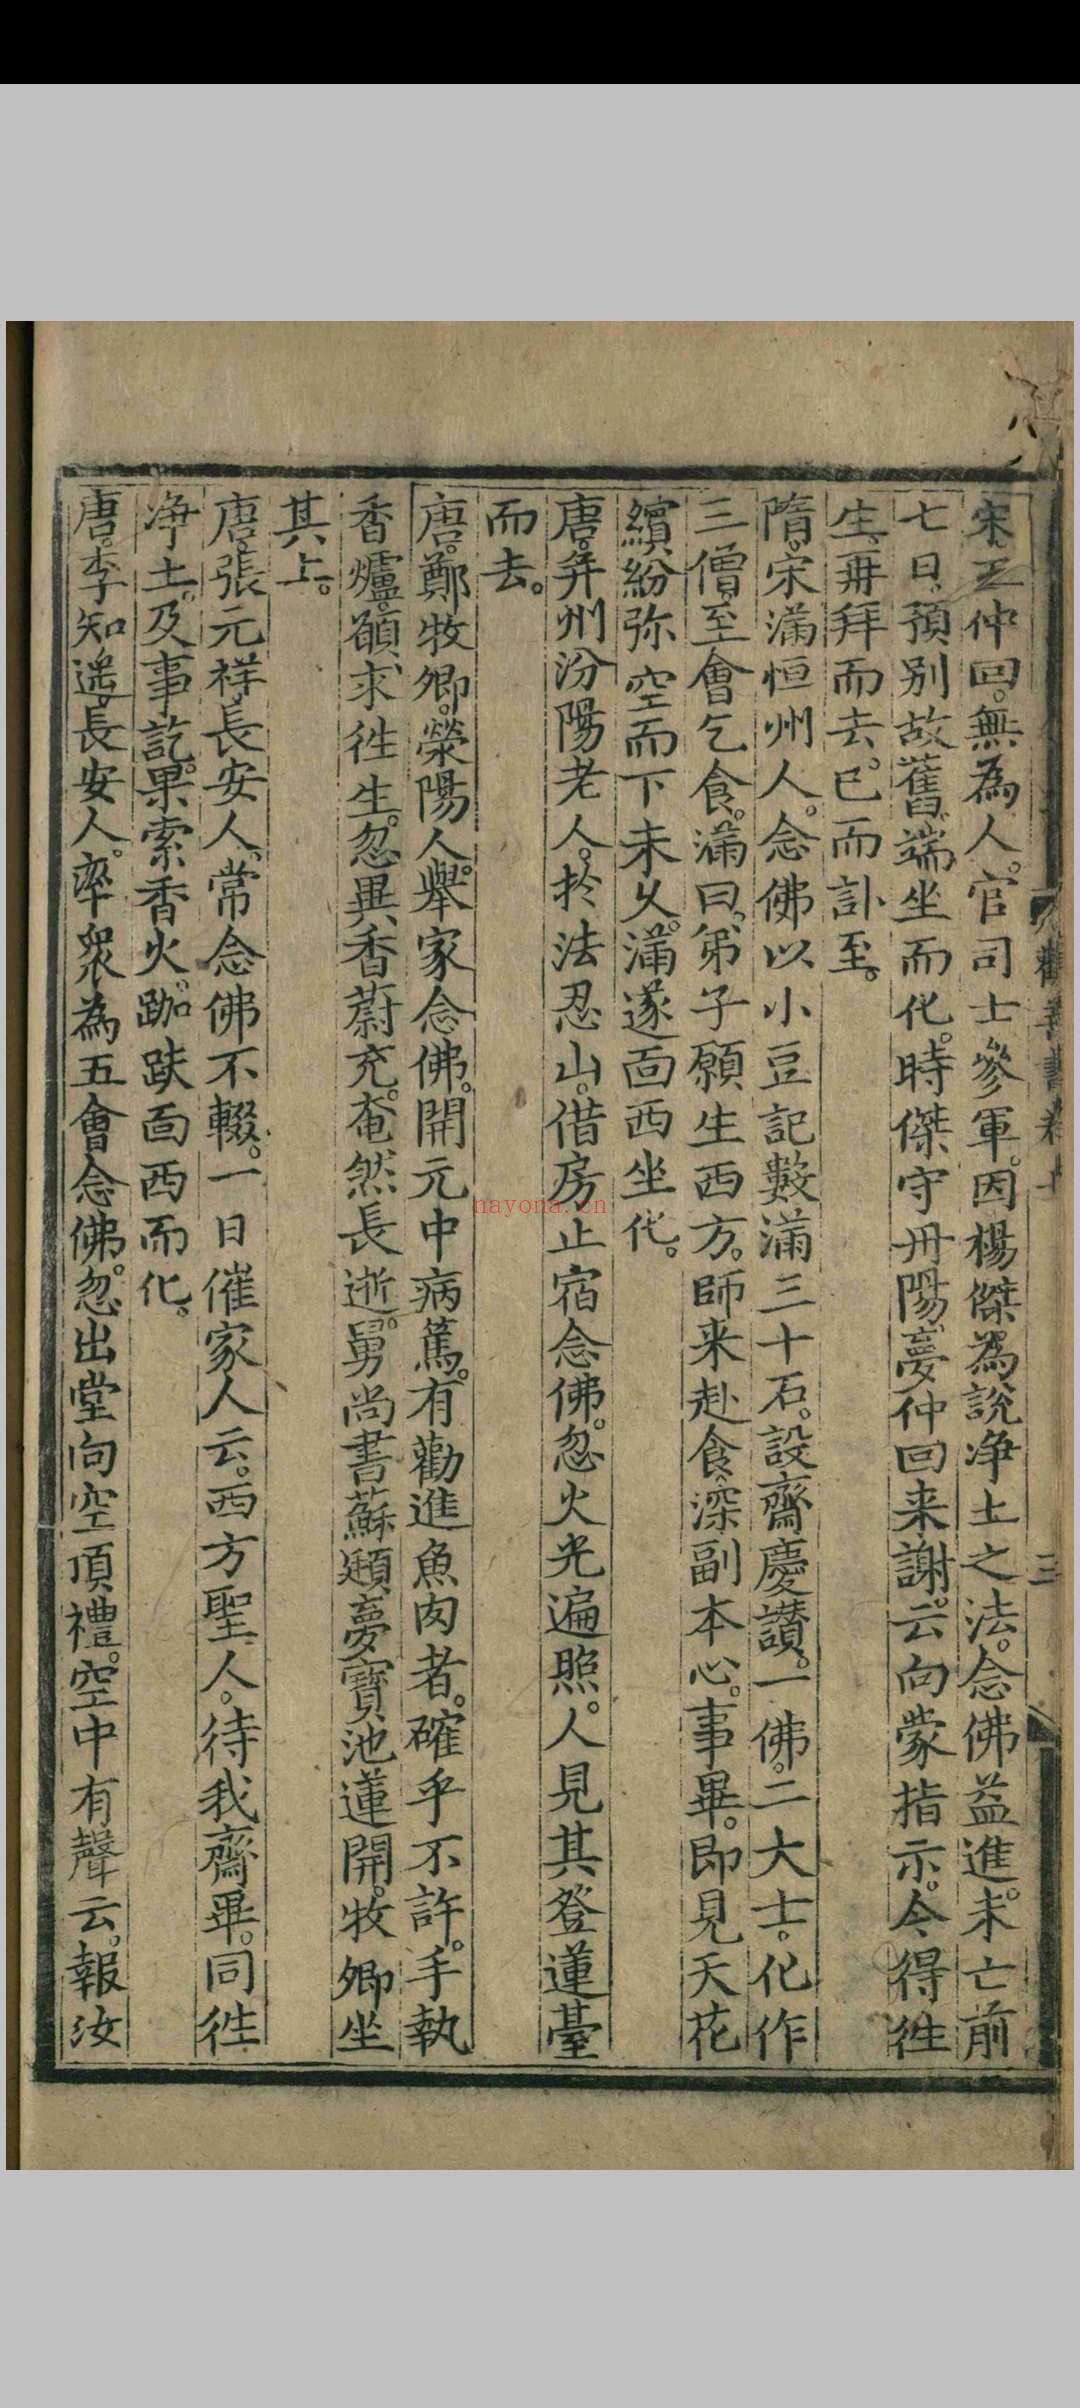 宋王仲回。無為人。官司士參軍。因楊傑為說淨土之法。念佛益進。未亡前
七日。預别故舊。端坐而化。時傑守丹陽。夢仲回来謝。云向蒙指示。今得徃
生。再拜而去。已而訃至。
隋。宋滿恒州人。念佛以小豆記數滿三十石。設齋慶讃。一佛。二大士。化作
三僧。至會乞食。滿曰。弟子願生西方。師来赴食。深副本心。事畢。即見天花
繽紛弥空而下未久。滿遂面西坐化。
唐。并州汾陽老人。於法忍山。借房止宿念佛。忽火光遍照。人見其登蓮臺
而去。
唐。鄭牧卿。滎陽人。舉家念佛。開元中病篤。有勸進魚肉者。確乎不許。手執
香爐。願求徃生。忽異香蔚充。奄然長逝。舅尚書蘇頲夢寶池蓮開。牧卿坐
其上。
唐。張元祥。長安人。常念佛不輟。一日催家人云。西方聖人。待我齋畢。同徃
淨土。及事訖。果索香火。跏趺面西而化。
唐。李知遥。長安人。率衆為五會念佛。忽出堂向空頂禮。空中有聲云。報汝
勸善書卷十
三
nayona.cn